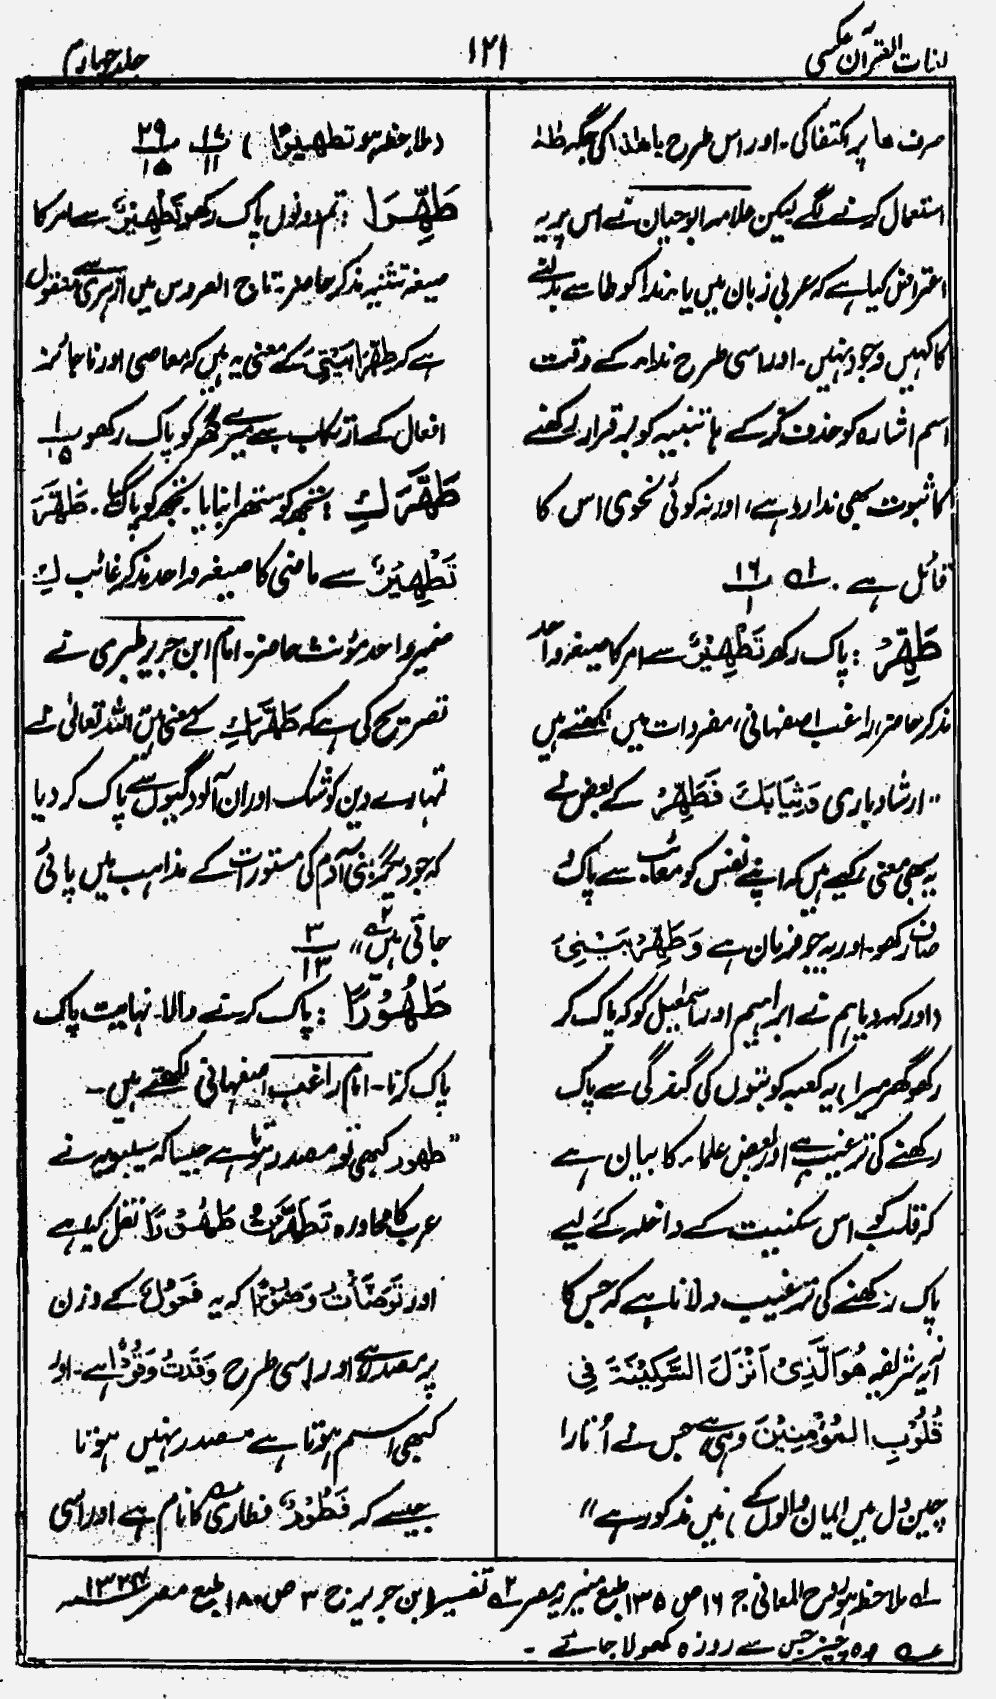 لغات القرآن عکسی
۱۲۱
جلد چہارم
صرف ھا پر اکتفا کی۔ اور اس طرح یا ھذا کی جگہ طٰہٰ
استعمال کرنے لگے لیکن علامہ ابو حیان نے اس پر یہ
اعتراض کیا ہے کہ عربی زبان میں یا ندا کو طا سے بدلنے
کا کہیں وجود نہیں۔ اور اسی طرح ندا کے وقت
اسم اشارہ کو حذف کر کے ہا تنبیہ کو برقرار رکھنے
کا ثبوت بھی ندارد ہے، اور نہ کوئی نحوی اس کا
قائل ہے۔ ۱۶
طَهِّرْ : پاک رکھ تَطْهِيْرٌ سے امر کا صیغہ واحد
مذکر حاضر، راغب اصفہانی، مفردات میں لکھتے ہیں
" ارشاد باری وَثِيَابَكَ فَطَهِّرْ کے بعض نے
یہ بھی معنی کیے ہیں کہ اپنے نفس کو معائب سے پاک
صاف رکھو۔ اور یہ جو فرمان ہے وَطَهِّرْ بَيْتِيَ
داور کہہ دیا ہم نے ابراہیم اور اسمٰعیل کو کہ پاک کر
رکھو گھر میرا) یہ کعبہ کو بتوں کی گندگی سے پاک
رکھنے کی ترغیب ہے اور بعض علماء کا بیان ہے
کہ قلب کو اس سکینت کے داخلہ کے لیے
پاک رکھنے کی ترغیب دلانا ہے کہ جس کا
آیہ شریفہ هُوَ الَّذِيْ اَنْزَلَ السَّكِيْنَةَ فِيْ
قُلُوْبِ الْمُؤْمِنِيْنَ وہی ہے جس نے اُتارا
چین دل میں ایمان والوں کے) میں مذکور ہے"
(ملاحظہ ہو تطهيرًا) ۱۷ ۱۱ ۲۹ ۱۵
طَهِّرَا : تم دونوں پاک رکھو تَطْهِيْرٌ سے امر کا
صیغہ تثنیہ مذکر حاضر، تاج العروس میں ازہری سے منقول
ہے کہ طَهِّرَا بَيْتِيَ کے معنی یہ ہیں کہ معاصی اور ناجائز
افعال کے ارتکاب سے میرے گھر کو پاک رکھو ۱ ۱۵
طَهَّرَكِ : تجھ کو ستھرا بنایا۔ تجھ کو پاک کیا۔ طَهَّرَ
تَطْهِيْرٌ سے ماضی کا صیغہ واحد مذکر غائب كِ
ضمیر واحد مؤنث حاضر۔ امام ابن جریر طبری نے
تصریح کی ہے کہ طَهَّرَكِ کے معنی ہیں اللہ تعالیٰ نے
تمہارے دین کو شک اور ان آلودگیوں سے پاک کر دیا
کہ جو دیگر بنی آدم کی مستورات کے مذاہب میں پائی
جاتی ہیں" ۲ ۳ ۱۳
طَهُوْرًا : پاک کرنے والا۔ نہایت پاک
پاک کرنا۔ امام راغب اصفہانی لکھتے ہیں۔
"طہور کبھی تو مصدر ہوتا ہے جیسا کہ سیبویہ نے
عرب کا محاورہ تَطَهَّرْتُ طَهُوْرًا نقل کیا ہے
اور تَوَضَّأْتُ وَضُوْءًا کہ یہ فَعُوْلٌ کے وزن
پر مصدر ہے اور اسی طرح وَقَدْتُ وَقُوْدًا ہے۔ اور
کبھی اسم ہوتا ہے مصدر نہیں ہوتا
جیسے کہ فَطُوْرٌ فطاری کا نام ہے اور اسی
۱؂ ملاحظہ ہو روح المعانی ج ۱۶ ص ۱۳۵ طبع منیریہ مصر ۲؂ تفسیر ابن جریر ج ۳ ص ۱۸۰ طبع مصر
؂ وہ چیز جس سے روزہ کھولا جائے۔